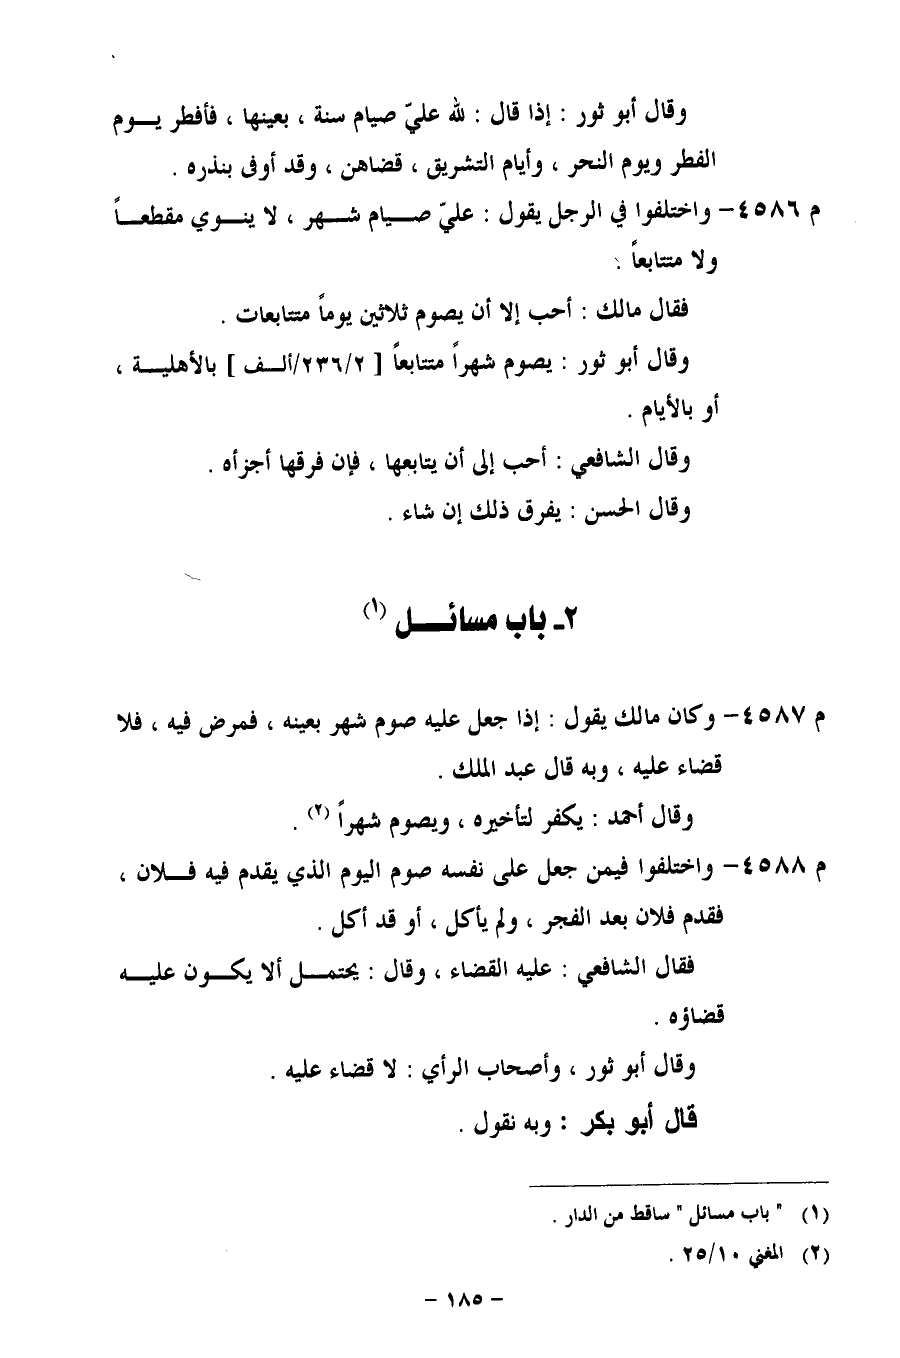 وقال أبو ثور : إذا قال : لله عليّ صيام سنة ، بعينها ، فأفطر يـــوم
الفطر ويوم النحر ، وأيام التشريق ، قضاهن ، وقد أوفى بنذره .
م ٤٥٨٦– واختلفوا في الرجل يقول : عليّ صـــيام شـــهر ، لا ينـــوي مقطعـــاً
ولا متتابعاً :
فقال مالك : أحب إلا أن يصوم ثلاثين يوماً متتابعات .
وقال أبو ثور : يصوم شهراً متتابعاً [ ٢/٢٣٦/ألـــف ] بالأهليـــة ،
أو بالأيام .
وقال الشافعي : أحب إلى أن يتابعها ، فإن فرقها أجزأه .
وقال الحسن : يفرق ذلك إن شاء .
٢ـ باب مسائـــل (١)
م ٤٥٨٧– وكان مالك يقول : إذا جعل عليه صوم شهر بعينه ، فمرض فيه ، فلا
قضاء عليه ، وبه قال عبد الملك .
وقال أحمد : يكفر لتأخيره ، ويصوم شهراً (٢) .
م ٤٥٨٨– واختلفوا فيمن جعل على نفسه صوم اليوم الذي يقدم فيه فـــلان ،
فقدم فلان بعد الفجر ، ولم يأكل ، أو قد أكل .
فقال الشافعي : عليه القضاء ، وقال : يحتمـــل ألا يكـــون عليـــه
قضاؤه .
وقال أبو ثور ، وأصحاب الرأي : لا قضاء عليه .
قال أبو بكر : وبه نقول .
(١) " باب مسائل " ساقط من الدار .
(٢) المغني ٢٥/١٠ .
– ١٨٥ –